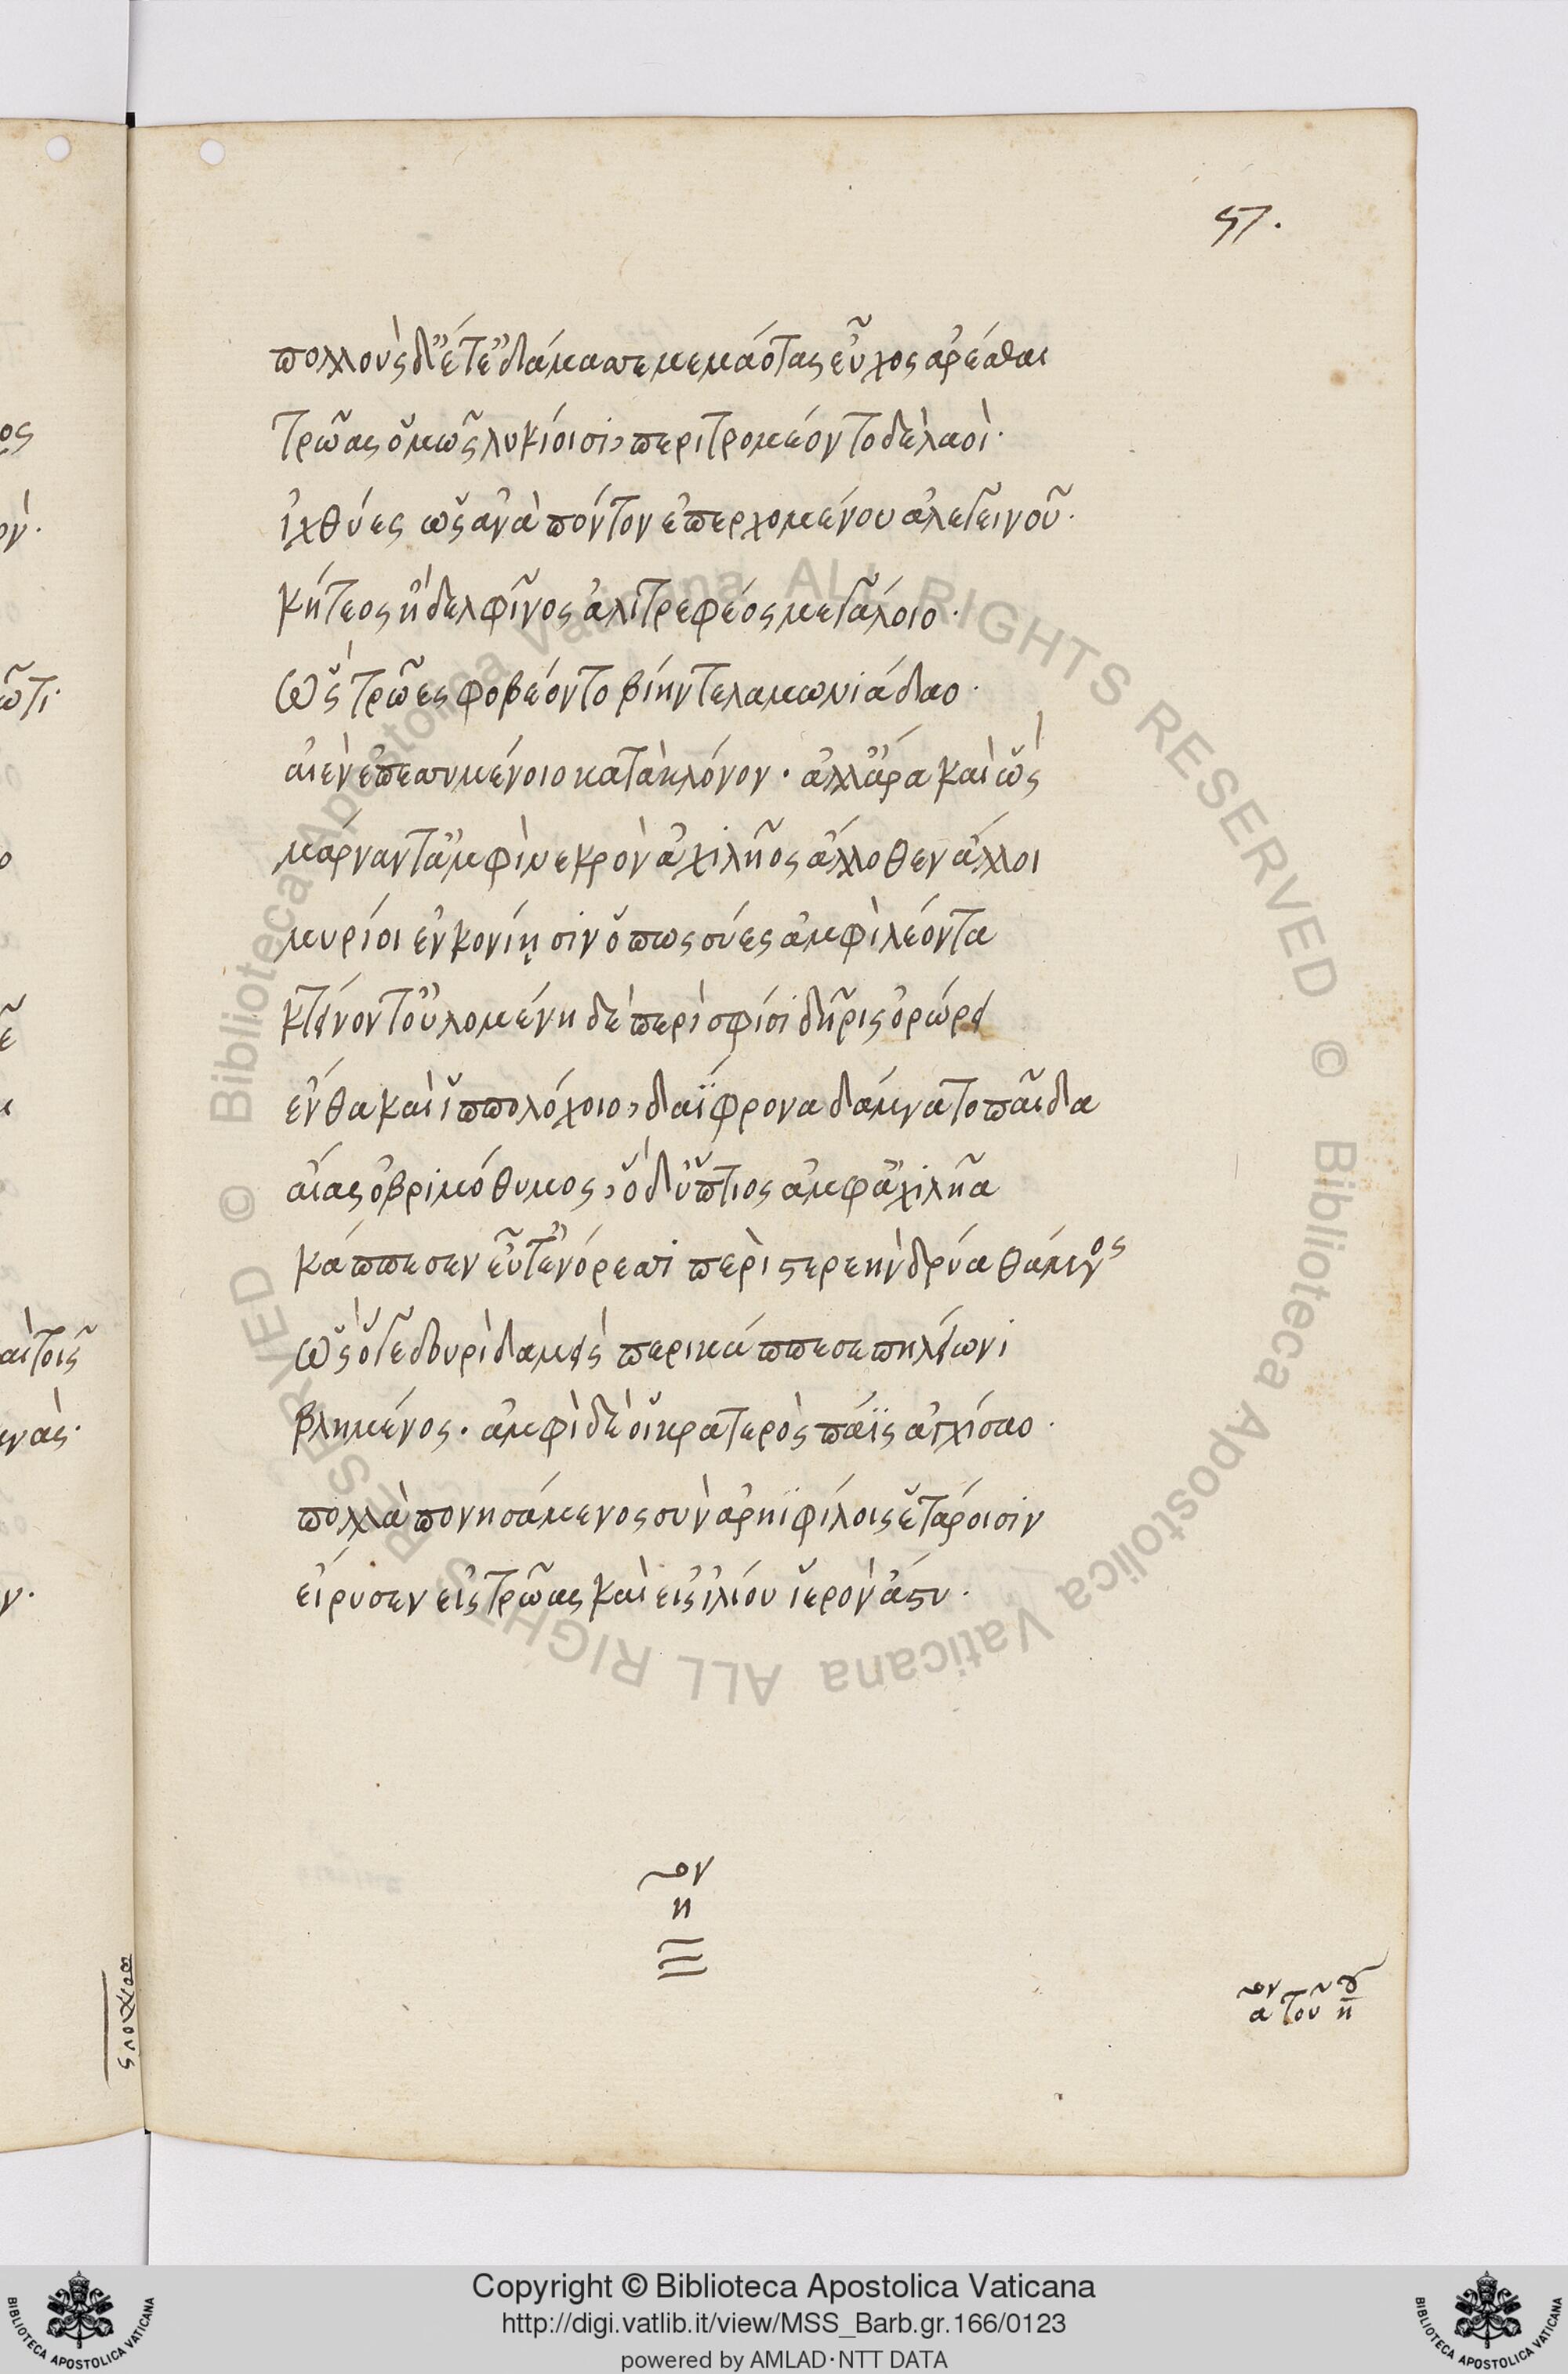 57.
πολλοὺς δ' ἔτ' ἐδάμασσε μεμαότας εὖχος ἀρέσθαι
τρῶας ὁμῶς λυκίοισι, περιτρομέοντο δὲ λαοὶ·
ἰχθύες ὡς ἀνὰ πόντον ἐπερχομένου ἀλεγεινοῦ·
κήτεος ἢ δελφῖνος ἁλιτρεφέος μεγάλοιο·
ὣς τρῶες φοβέοντο βίην τελαμωνιάδαο·
αἰὲν ἐπεσσυμένοιο κατὰ κλόνον· ἀλλ' ἄρα καὶ ὣς
μάρναντ' ἀμφὶ νεκρὸν ἀχιλῆος ἄλλοθεν ἄλλοι
μυρίοι ἐν κονίῃσιν ὅπως σύες ἀμφὶ λέοντα
κτείνοντ' οὐλομένη δὲ περὶ σφίσι δῆρις ὀρώρει
ἔνθα καὶ ἱππολόχοιο, δαΐφρονα δάμνατο παῖδα
αἴας ὀβριμόθυμος, ὃ δ' ὕπτιος ἀμφ' ἀχιλῆα
κάππεσεν εὖτ' ἐν ὄρεσσι περὶ στερεὴν δρύα θάμνος
ὣς ὅγε δουρὶ δαμεὶς περικάππεσε πηλείωνι
βλημένος· ἀμφὶ δέ οἱ κρατερὸς πάϊς ἀγχίσαο·
πολλὰ πονησάμενος σὺν ἀρηϊφίλοις ἑτάροισιν
εἴρυσεν εἰς τρῶας καὶ εἰς ἰλίου ἱερὸν ἄστυ·
ον
η
ον
α τοῦ η
Copyright © Biblioteca Apostolica Vaticana
http://digi.vatlib.it/view/MSS_Barb.gr.166/0123
powered by AMLAD·NTT DATA
BIBLIOTECA APOSTOLICA VATICANA
BIBLIOTECA APOSTOLICA VATICANA
© Biblioteca Apostolica Vaticana ALL RIGHTS RESERVED © Biblioteca Apostolica Vaticana ALL RIGHTS RESERVED